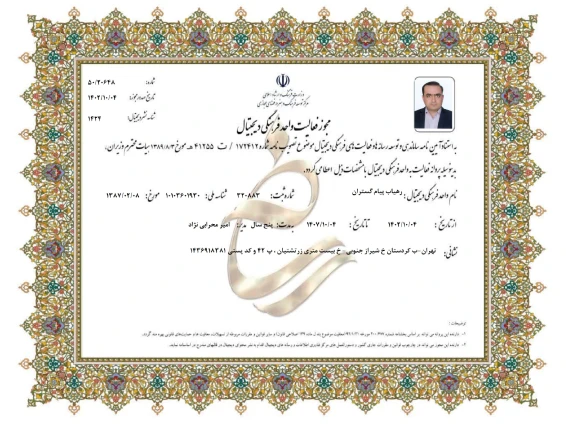 شماره: ۵۰/۲۰۶۴۸
تاریخ صدور مجوز: ۱۴۰۲/۱۰/۰۴
شناسه نشر دیجیتال: ۱۴۲۴
وزارت فرهنگ و ارشاد اسلامی
مجوز فعالیت واحد فرهنگی دیجیتال
به استناد آیین نامه ساماندهی و توسعه رسانه‌ها و فعالیت‌های فرهنگی دیجیتال موضوع تصویب نامه شماره ۱۷۲۴۱۲ / ت ۴۱۲۵۵ هـ مورخ ۱۳۸۹/۸/۳ هیات محترم وزیران،
بدینوسیله پروانه فعالیت به واحد فرهنگی دیجیتال با مشخصات ذیل اعطا می گردد.
نام واحد فرهنگی دیجیتال: رهیاب پیام گستران شماره ثبت: ۳۲۰۸۸۳ شناسه ملی: ۱۰۱۰۳۶۰۱۹۳۰ مورخ: ۱۳۸۷/۰۲/۰۸
از تاریخ: ۱۴۰۲/۱۰/۰۴ تا تاریخ: ۱۴۰۷/۱۰/۰۴ به مدت: پنج سال مدیر: امیر محرابی نژاد
نشانی: تهران -ب کردستان خ شیراز جنوبی، خ بیست متری زرتشتیان ، پ ۴۲ و کد پستی ۱۴۳۶۹۱۸۳۸۱
توضیحات: